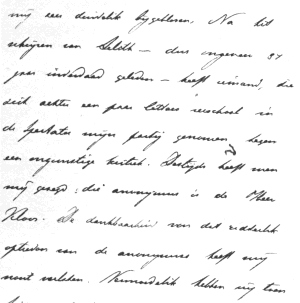 mij zeer duidelijk bijgebleven. Na het
schrijven van Saïdth — dus ongeveer 37
jaar inderdaad geleden — heeft iemand, die
zich achter een paar letters verschool in
de Spectator mijn partij genomen, tegen
een ongunstige kritiek. Destijds heeft men
mij gezegd: die anonymus is de Heer
Kloos. De dankbaarheid van dat ridderlijk
optreden van de anonymus heeft mij
nooit verlaten. Vermoedelijk hebben wij toen